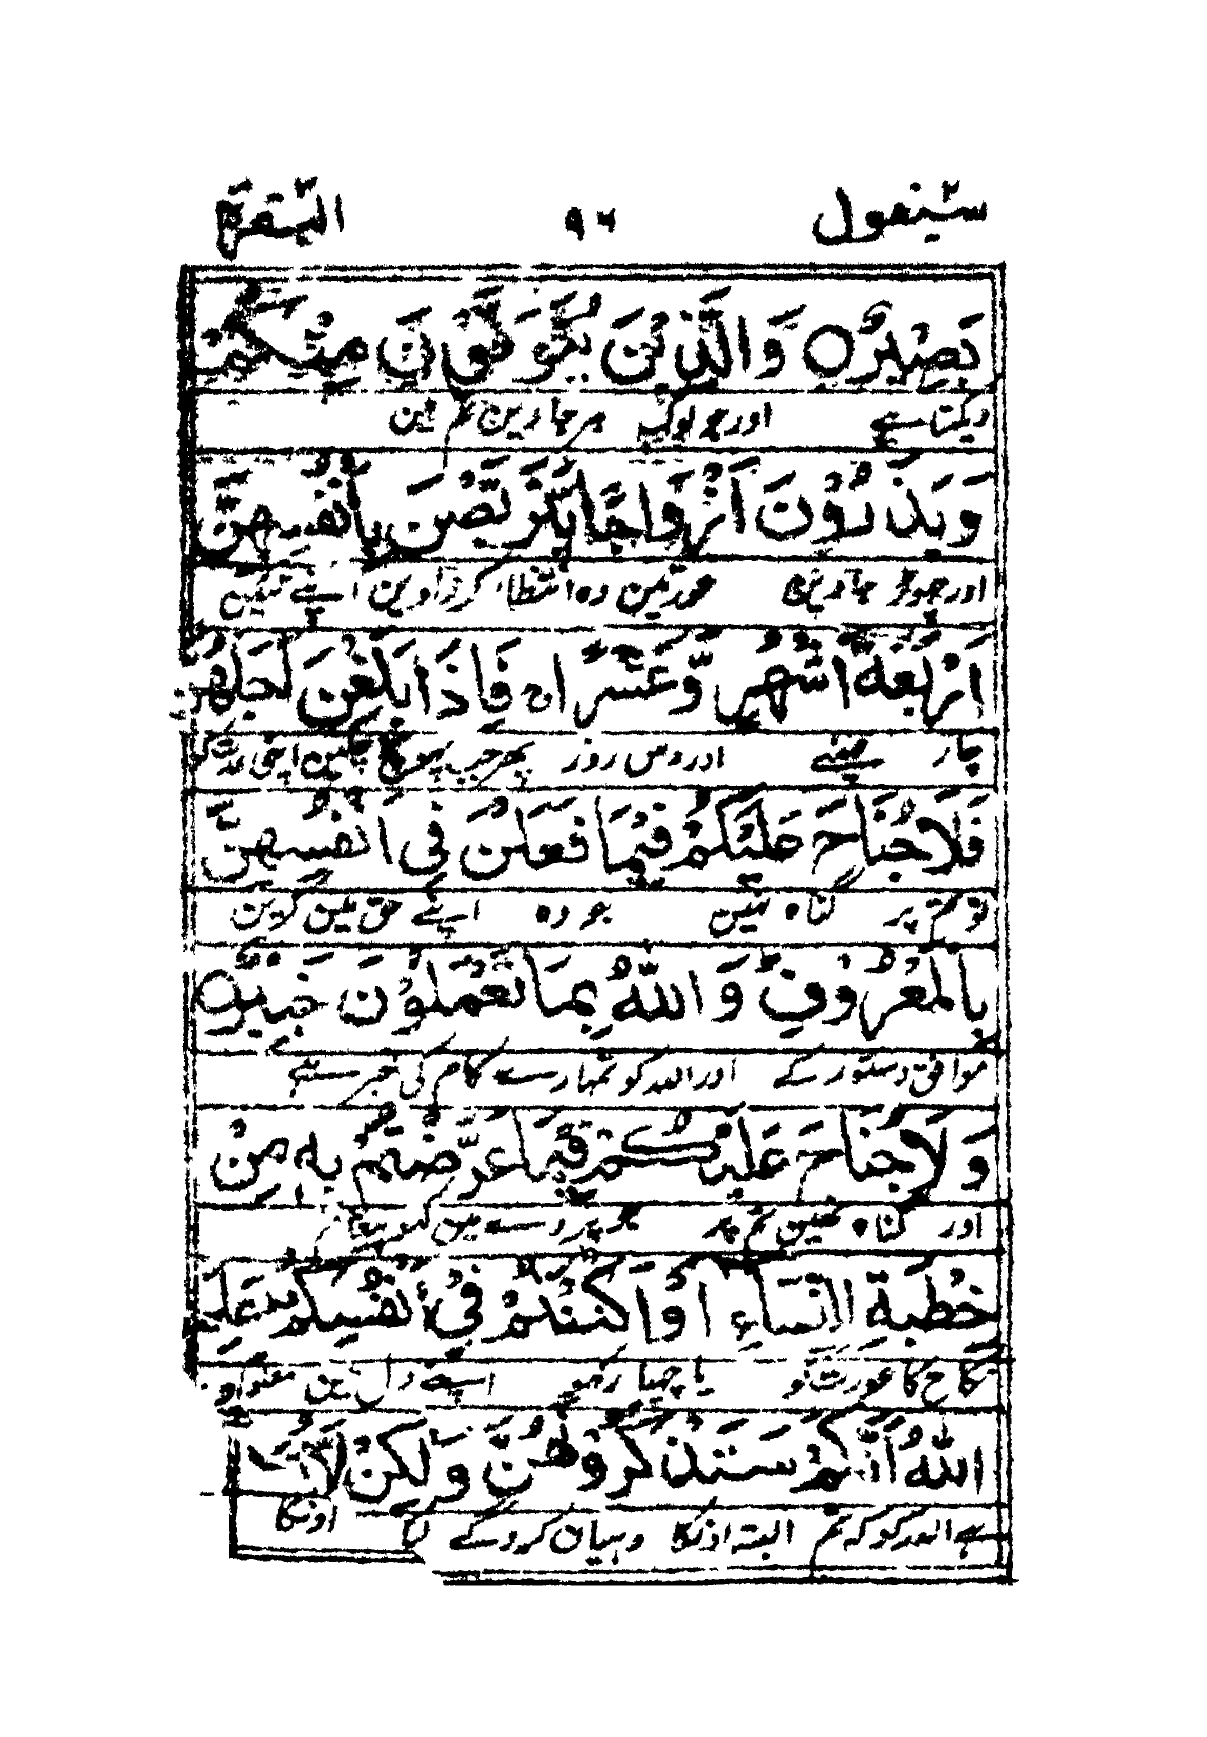 سيقول ٢ ٩٦ البقرة ٢
بَصِيْرٌ ○ وَالَّذِيْنَ يُتَوَفَّوْنَ مِنْكُمْ
دیکتا ہے اور جو لوگ مر جاوین تم مین
وَيَذَرُوْنَ اَزْوَاجًا يَّتَرَبَّصْنَ بِاَنْفُسِهِنَّ
اور چھوڑ جاوین عورتین وہ انتظار کرواوین اپنے تئین
اَرْبَعَةَ اَشْهُرٍ وَّعَشْرًا ۚ فَاِذَا بَلَغْنَ اَجَلَهُنَّ
چار مہینے اور دس روز پھر جب پہونچ چکین اپنی مدت کو
فَلَا جُنَاحَ عَلَيْكُمْ فِيْمَا فَعَلْنَ فِىْ اَنْفُسِهِنَّ
تو تم پر گناہ نہین جو وہ اپنے حق مین کرین
بِالْمَعْرُوْفِ وَاللّٰهُ بِمَا تَعْمَلُوْنَ خَبِيْرٌ ○
موافق دستور کے اور اللہ کو تمہارے کام کی خبر ہے
وَلَا جُنَاحَ عَلَيْكُمْ فِيْمَا عَرَّضْتُمْ بِهٖ مِنْ
اور گناہ نہین تم پر جو پردے مین کہو پیغام
خِطْبَةِ النِّسَآءِ اَوْ اَكْنَنْتُمْ فِىْٓ اَنْفُسِكُمْ عَلِمَ
نکاح کا عورت کو یا چھپا رکھو اپنے دل مین معلوم
اللّٰهُ اَنَّكُمْ سَتَذْكُرُوْنَهُنَّ وَلٰكِنْ لَّا
ہے اللہ کو کہ تم البتہ اونکا دہیان کروگے